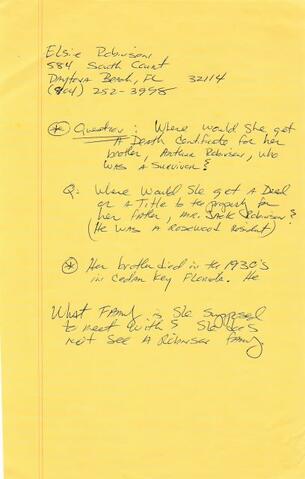 Elsie Robinson
584 South Court
Daytona Beach, FL 32114
(904) 252-3998
* Question: Where would she get
A Death Certificate for her
brother, Arthur Robinson, who
was a survivor?
Q: Where would she get A Deed
or a Title to the property for
her Father, Mr. Jack Robinson?
(He was a Rosewood Resident)
* Her brother died in the 1930's
in Cedar Key Florida. He
What Family is she supposed
to meet with? She does
not see A Robinson family.